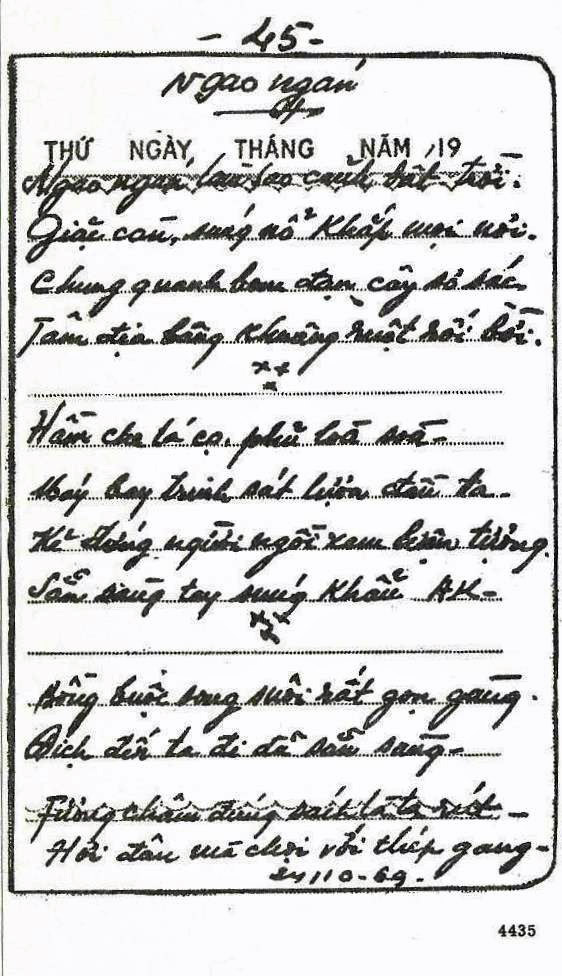 - 45 -
Ngao ngán
THỨ NGÀY THÁNG NĂM 19
Ngao ngán làm sao cảnh đất trời.
Giặc càn, súng nổ khắp mọi nơi.
Chung quanh bom đạn cây sơ sác
Tâm địa bâng khuâng ruột rối bời.
Hầm che lá cọ, phủ loà soà -
Máy bay trinh sát lượn đầu ta -
Kẻ đứng người ngồi xem tượng
Sẵn sàng tay súng khẩu AK -
Bồng buộc song suôi rất gọn gàng.
Địch đến ta đi đã sẵn sàng -
Phương châm đúng là ta -
Hơi đâu mà chọi với thép gang -
10-69.
4435